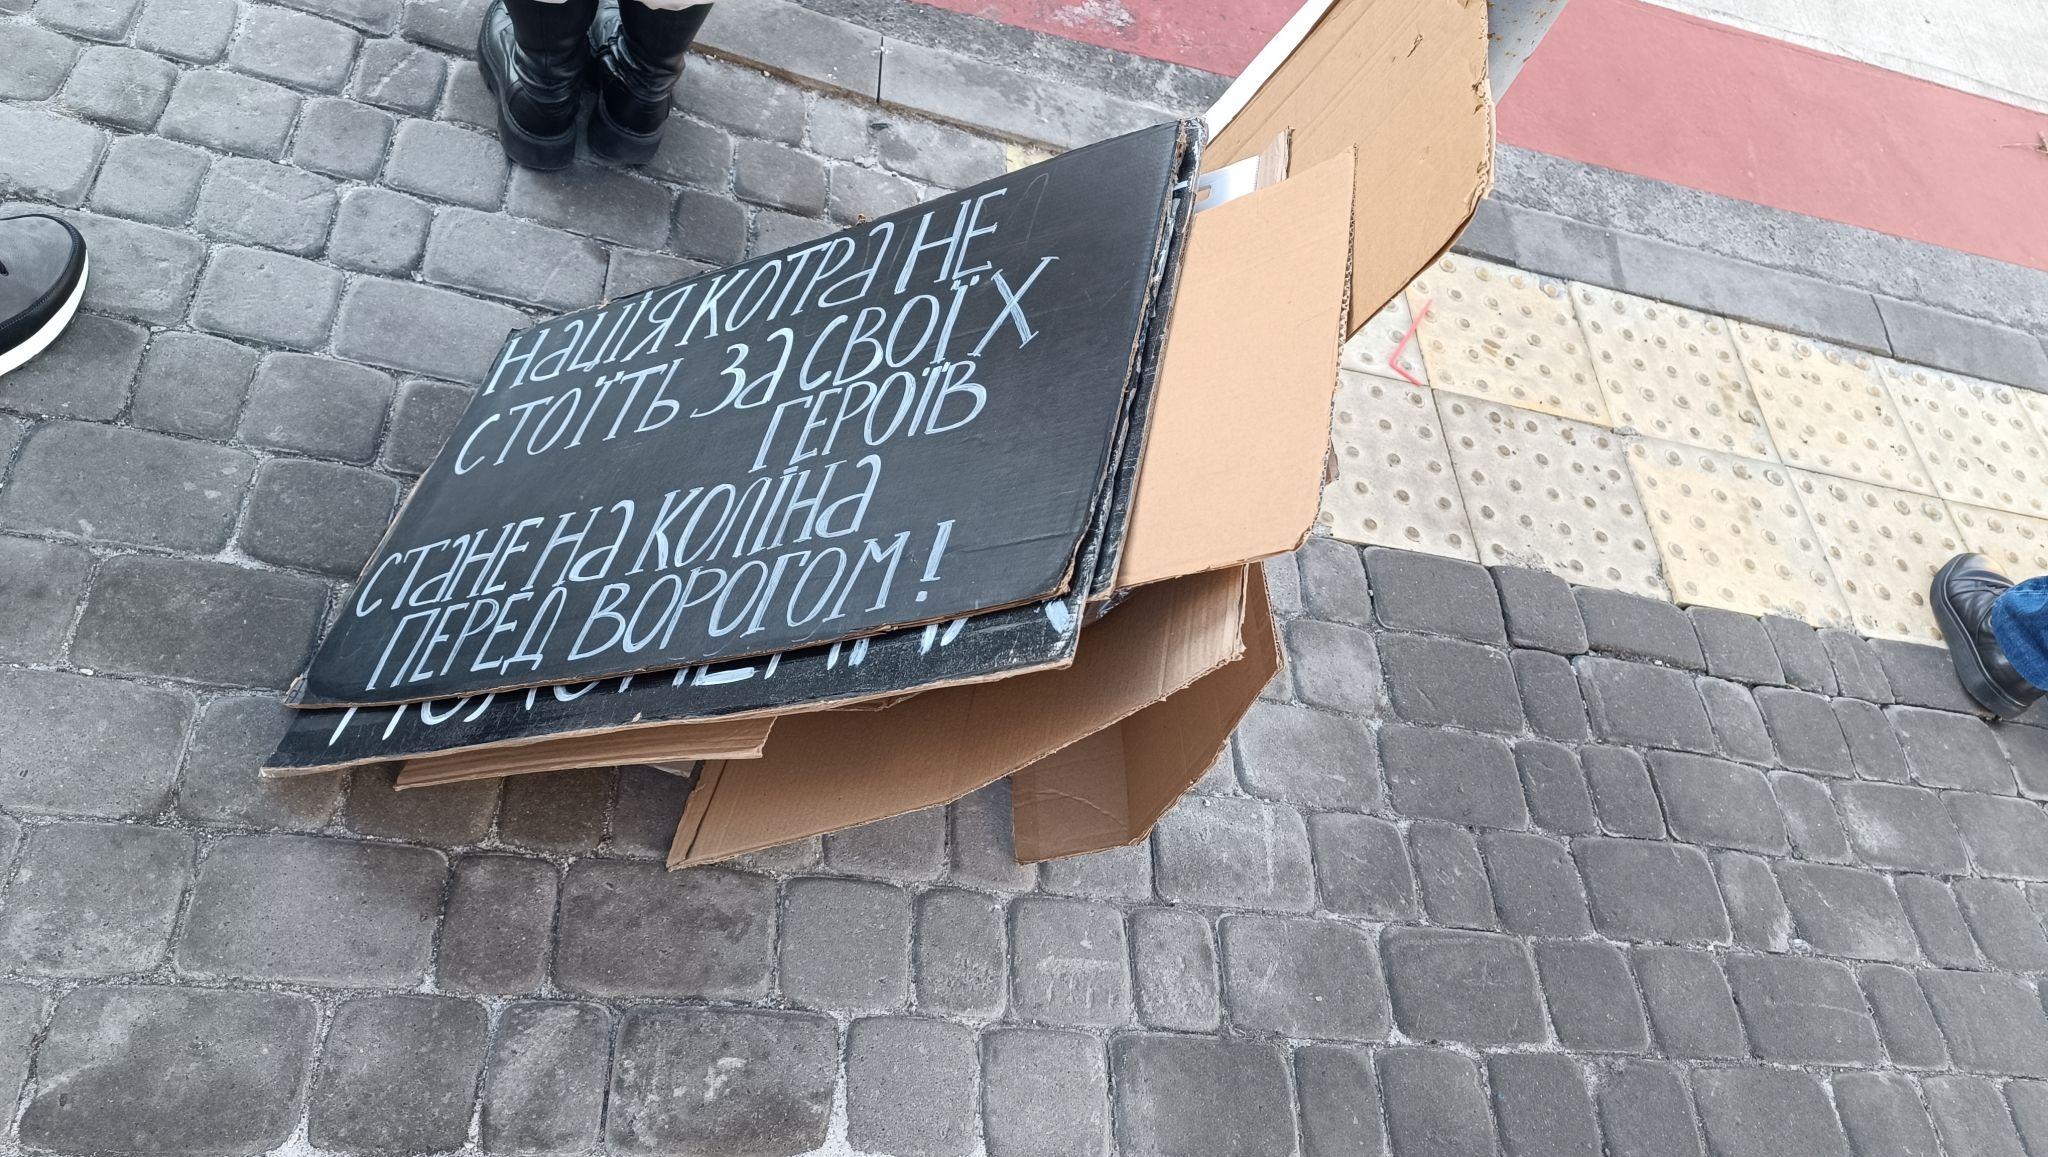 НАЦІЯ КОТРА НЕ
СТОЇТЬ ЗА СВОЇХ
ГЕРОЇВ
СТАНЕ НА КОЛІНА
ПЕРЕД ВОРОГОМ!